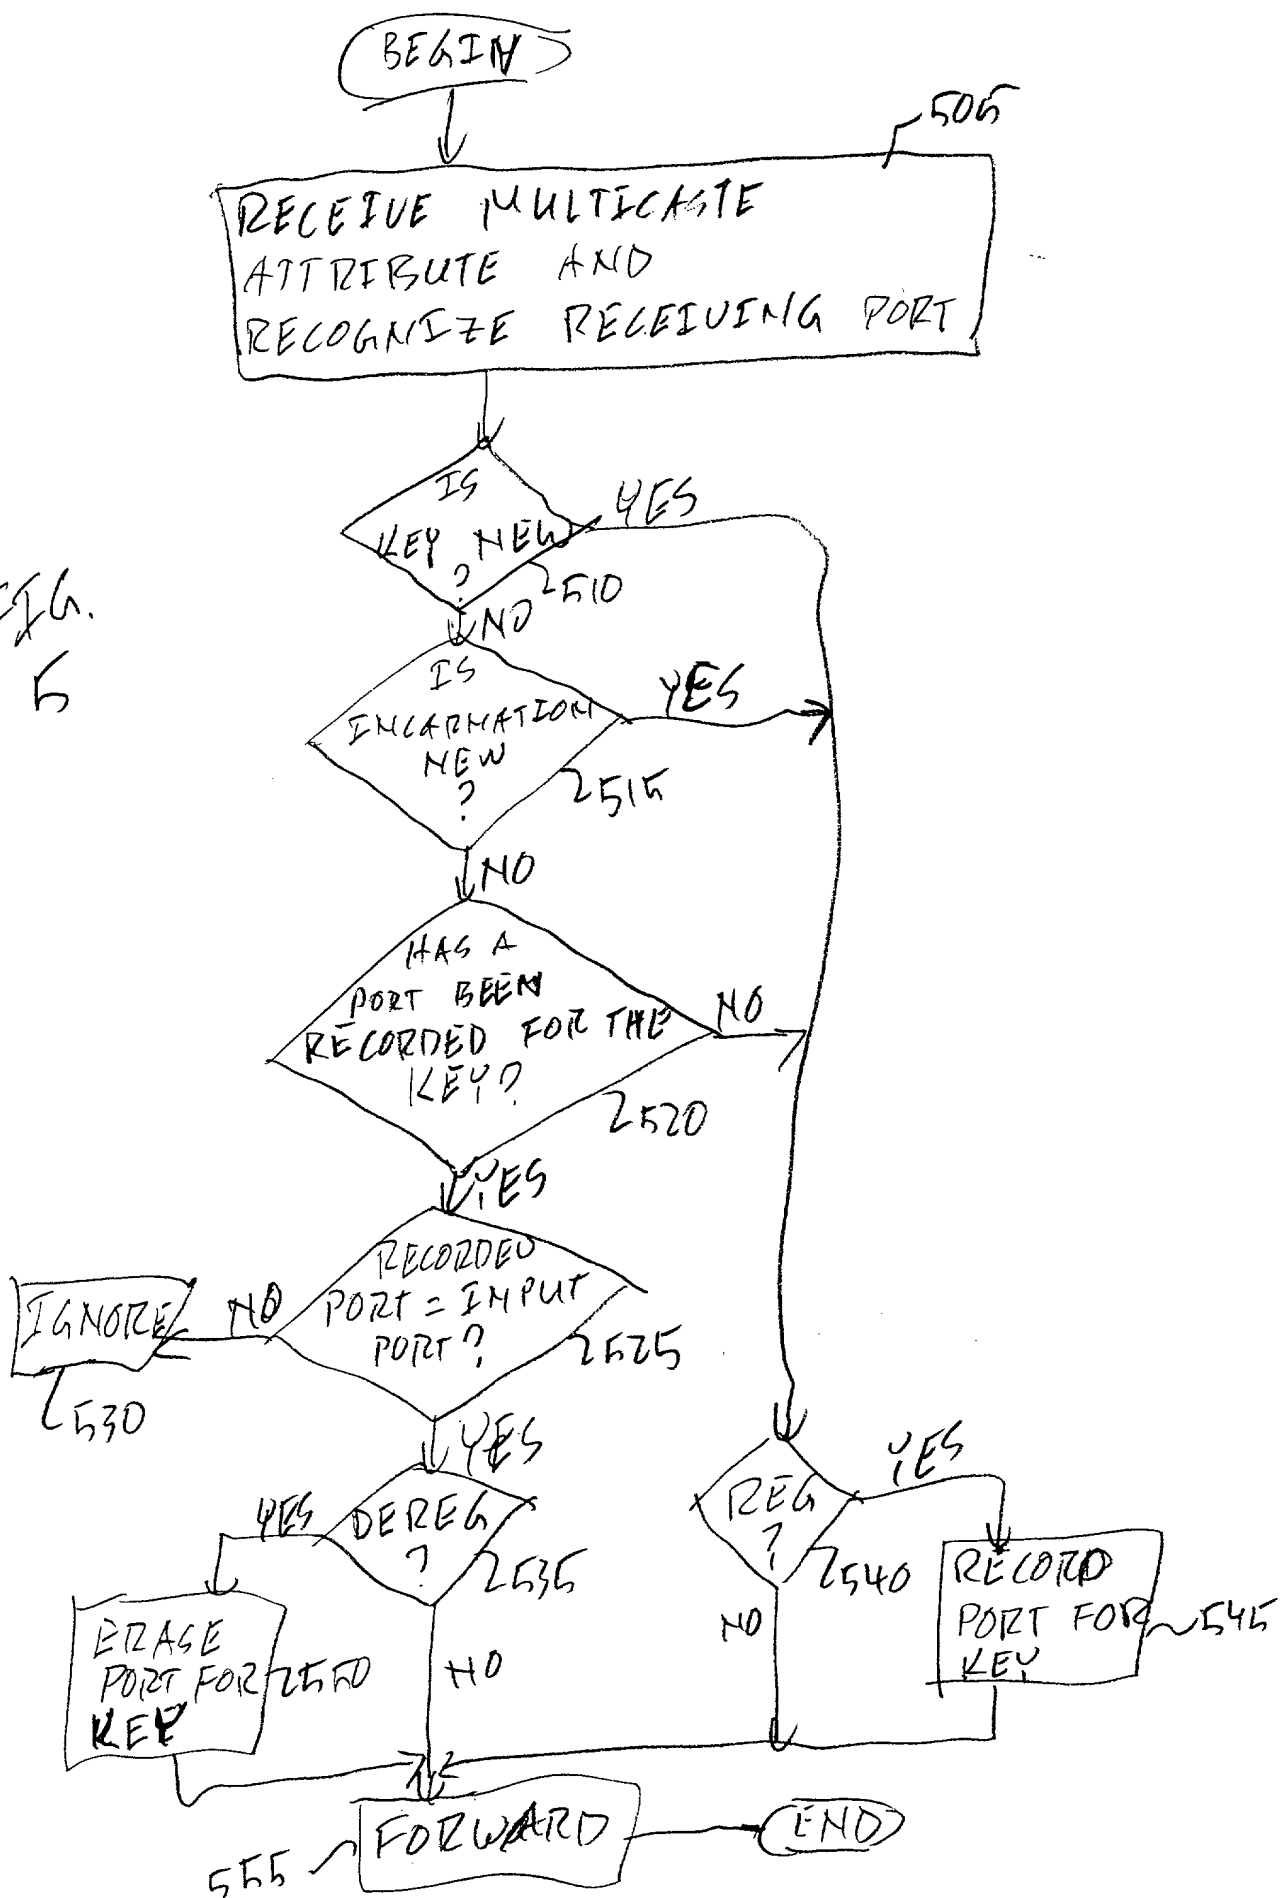 BEGIN
505
RECEIVE MULTICASTE
ATTRIBUTE AND
RECOGNIZE RECEIVING PORT
IS
KEY NEW
?
YES
510
NO
FIG.
5
IS
INCARNATION
NEW
?
YES
515
NO
HAS A
PORT BEEN
RECORDED FOR THE
KEY?
NO
520
YES
RECORDED
PORT = INPUT
PORT?
NO
525
IGNORE
530
YES
DEREG
?
YES
535
REG
?
YES
540
RECORD
PORT FOR
KEY
545
NO
ERASE
PORT FOR
KEY
550
NO
FORWARD
555
END